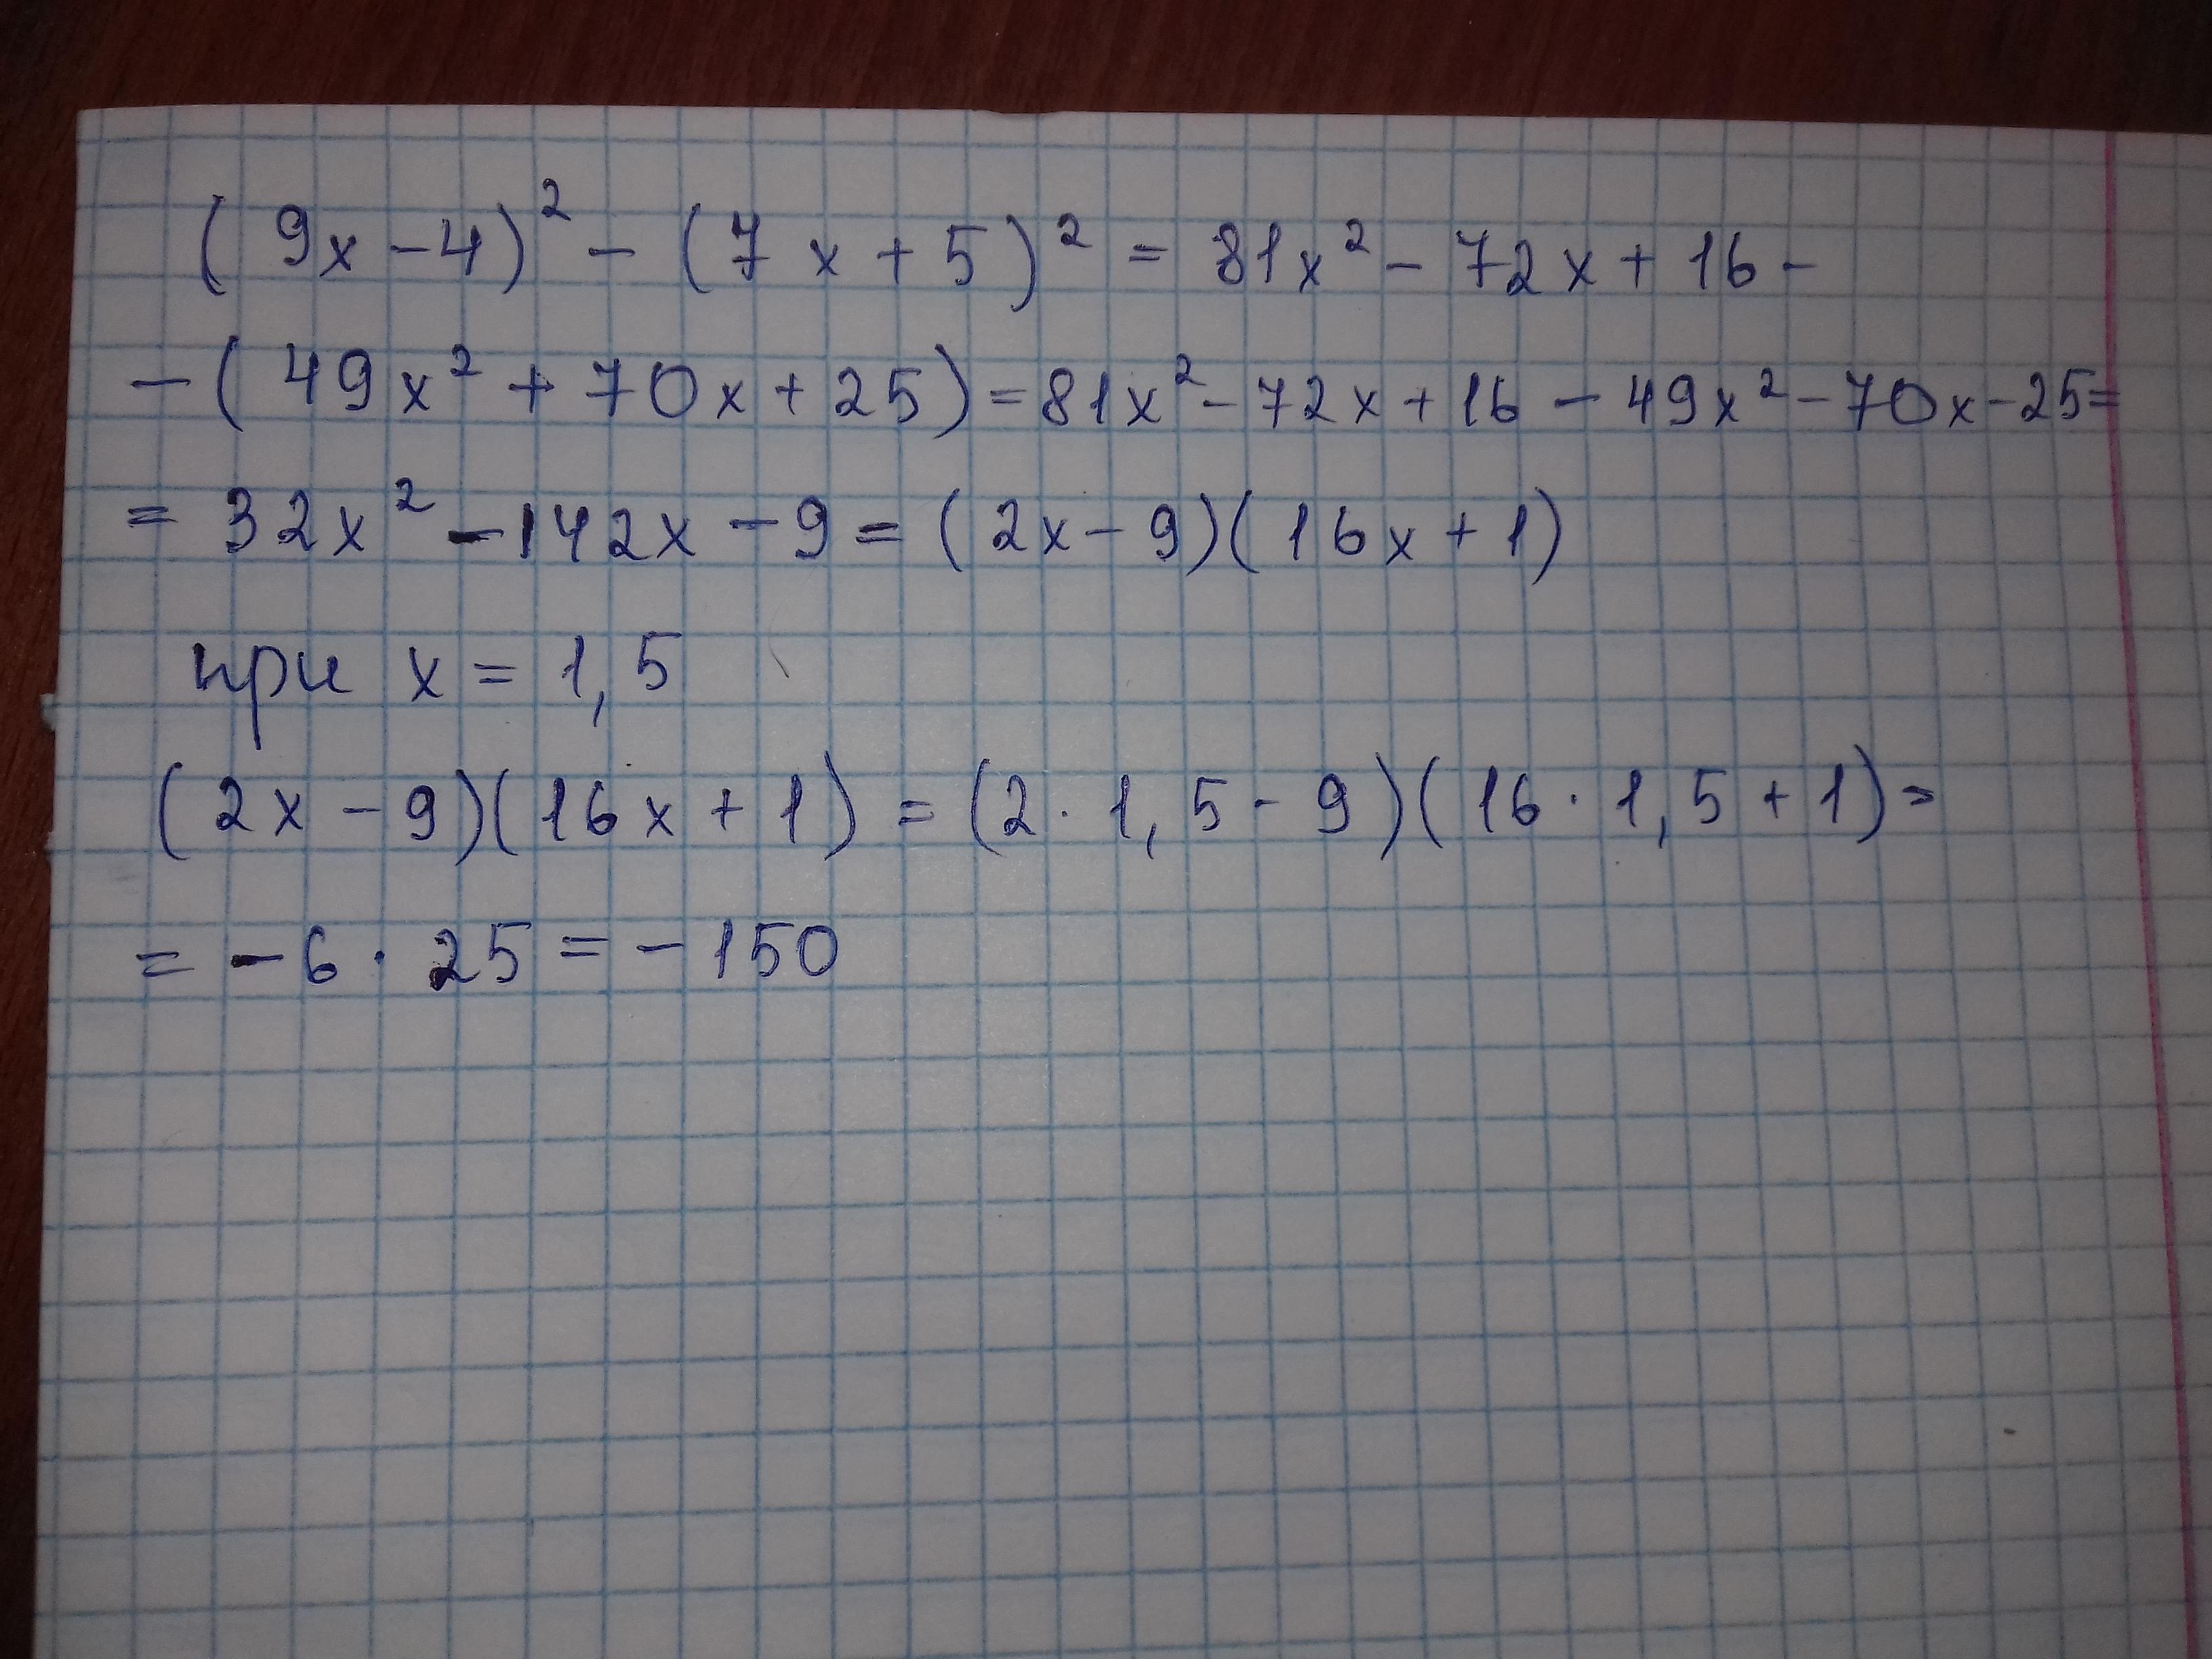 (9x-4)² - (7x+5)² = 81x² - 72x + 16 -
- (49x² + 70x + 25) = 81x² - 72x + 16 - 49x² - 70x - 25 =
= 32x² - 142x - 9 = (2x - 9)(16x + 1)
при x = 1,5
(2x - 9)(16x + 1) = (2 · 1,5 - 9)(16 · 1,5 + 1) =
= -6 · 25 = -150